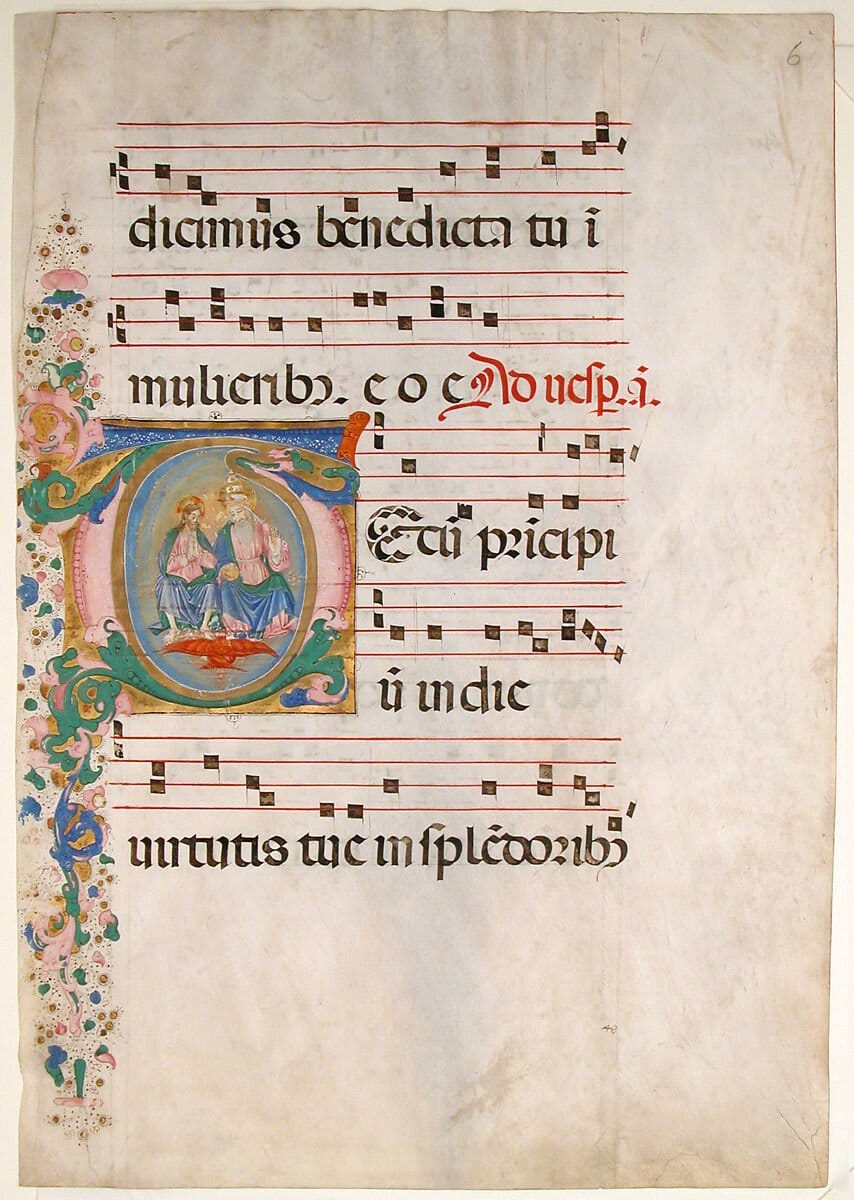 6
dicimus benedicta tu ī
mulieribꝫ. e o e Ad uesp. ā.
Tecū principi
ū in die
uirtutis tue in splēdoribꝫ
48